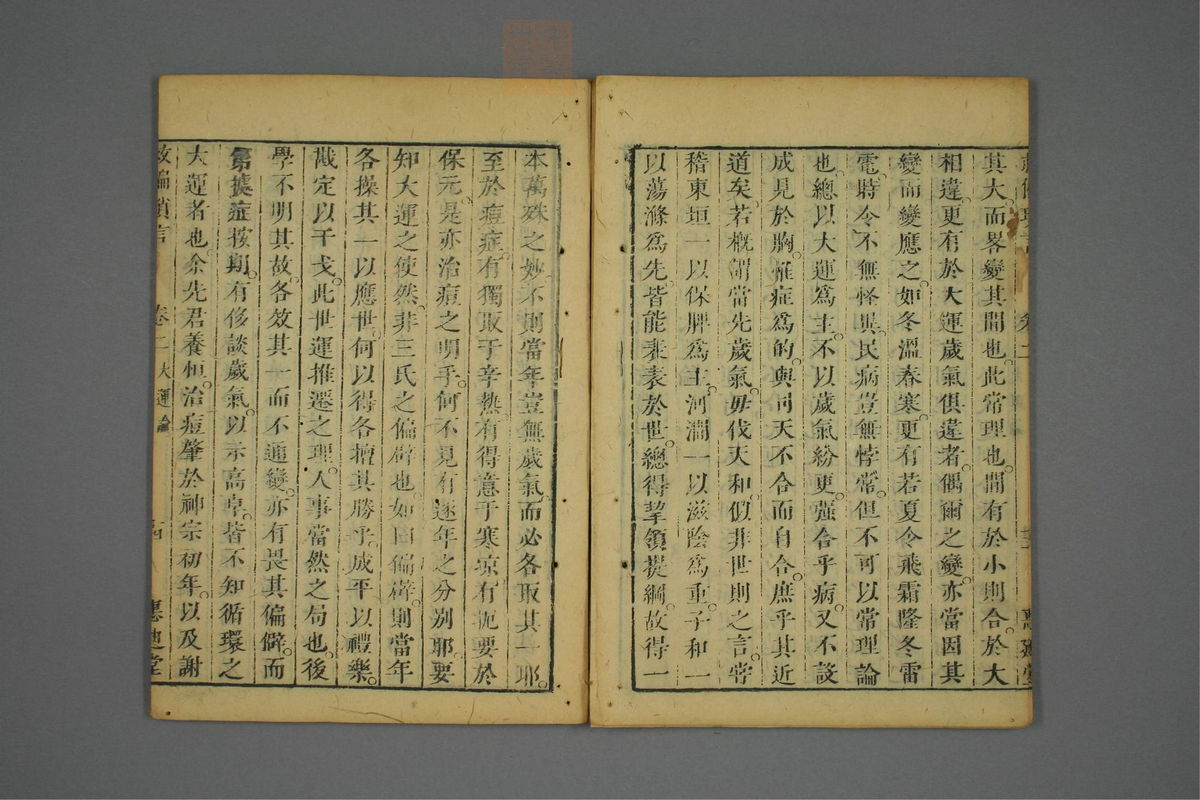 其大而畧變其間也此常理也間有於小則合於大
相違更有於大運歲氣俱違者偶爾之變亦當因其
變而變應之如冬溫春寒更有若夏令飛霜隆冬雷
電時令不無怪異民病豈無悖常但不可以常理論
也總以大運爲主不以歲氣紛更強合乎病又不設
成見於胸惟症爲的與司天不合而自合庶乎其近
道矣若概謂當先歲氣毋伐天和似非世則之言嘗
稽東垣一以保脾爲主河澗一以滋陰爲重子和一
以蕩滌爲先皆能表表於世總得挈領提綱故得一
本萬殊之妙不則當年豈無歲氣而必各取其一耶
至於痘症有獨取于辛熱有得意于寒凉有扼要於
保元是亦治痘之明乎何不見有逐年之分別耶要
知大運之使然非三氏之偏僻也如曰偏僻則當年
各操其一以應世何以得各擅其勝乎成平以禮樂
戡定以干戈此世運推遷之理人事當然之局也後
學不明其故各效其一而不通變亦有畏其偏僻而
第據症按期有侈談歲氣以示高卓皆不知循環之
大運者也余先君養恒治痘肇於神宗初年以及謝
救偏瑣言 卷二 大運論 十四 惠廸堂